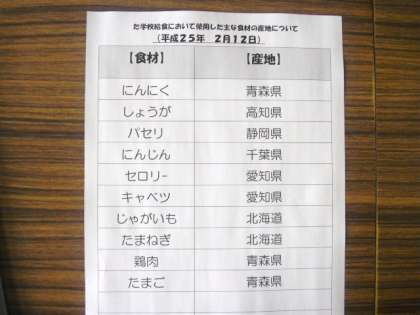 た学校給食において使用した主な食材の産地について
（平成２５年　２月１２日）
【食材】　【産地】
にんにく　青森県
しょうが　高知県
パセリ　静岡県
にんじん　千葉県
セロリー　愛知県
キャベツ　愛知県
じゃがいも　北海道
たまねぎ　北海道
鶏肉　青森県
たまご　青森県